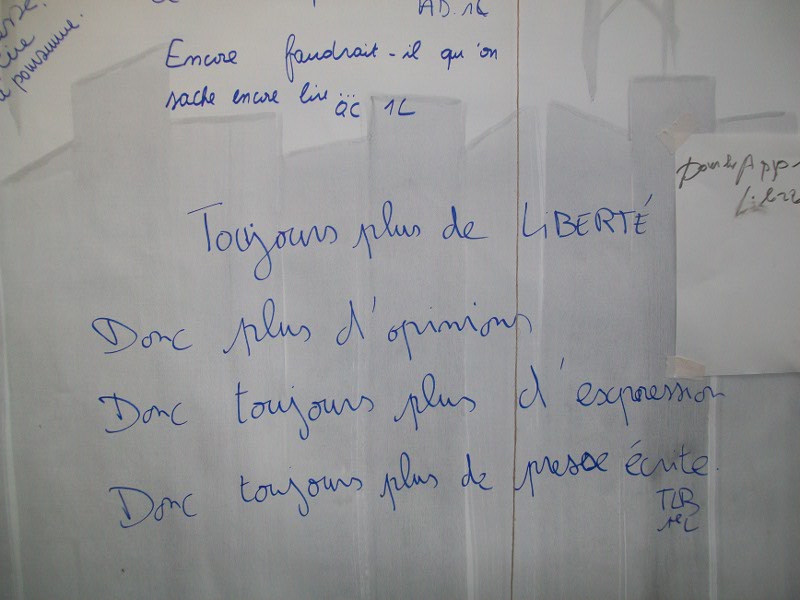 AD. 1L
Encore faudrait-il qu'on
sache encore lire...
QC 1L
Toujours plus de LiBERTÉ
Donc plus d'opinions
Donc toujours plus d'expression
Donc toujours plus de presse écrite.
TLB
1èL